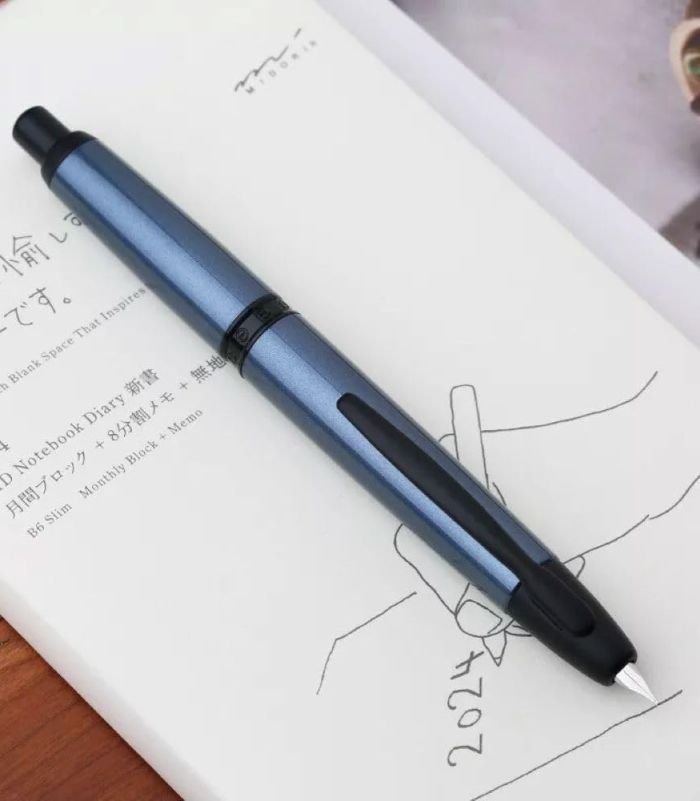 MIDORI
愉し
です。
Blank Space That Inspires
4
D Notebook Diary 新書
月間ブロック + 8分割メモ + 無地
B6 Slim Monthly Block + Memo
2024